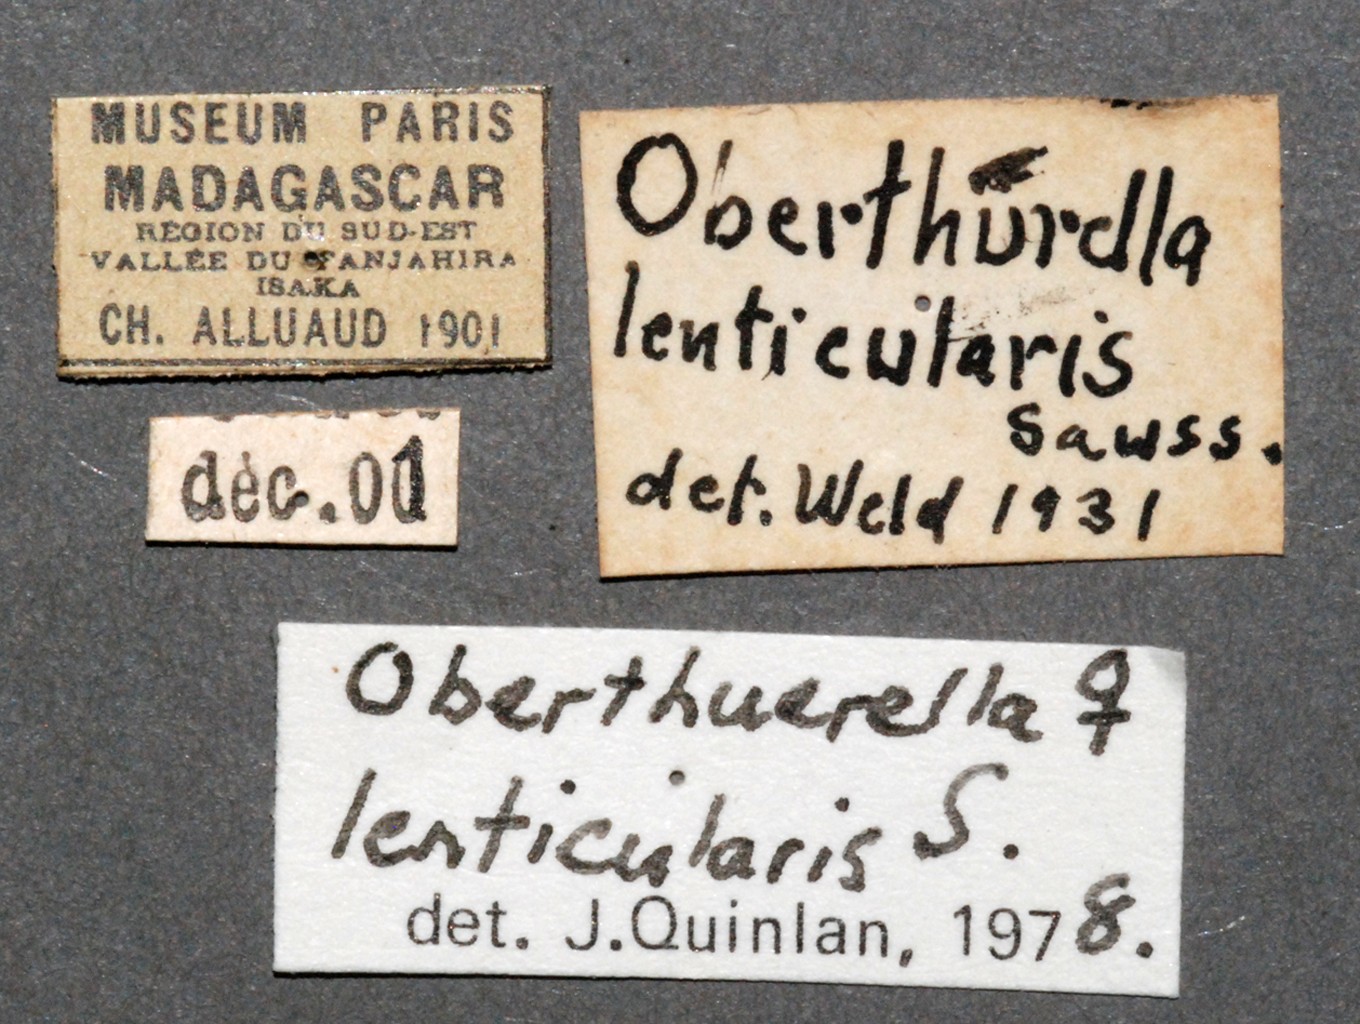 MUSEUM PARIS
MADAGASCAR
RÉGION DU SUD-EST
VALLÉE DU FANJAHIRA
ISAKA
CH. ALLUAUD 1901
déc. 01
Oberthürella
lenticularis
Sauss.
det. Weld 1931
Oberthuerella ♀
lenticularis S.
det. J.Quinlan, 1978.